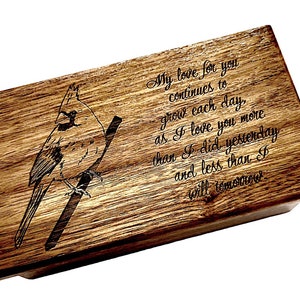 My love for you
continues to
grow each day,
as I love you more
than I did yesterday
and less than I
will tomorrow